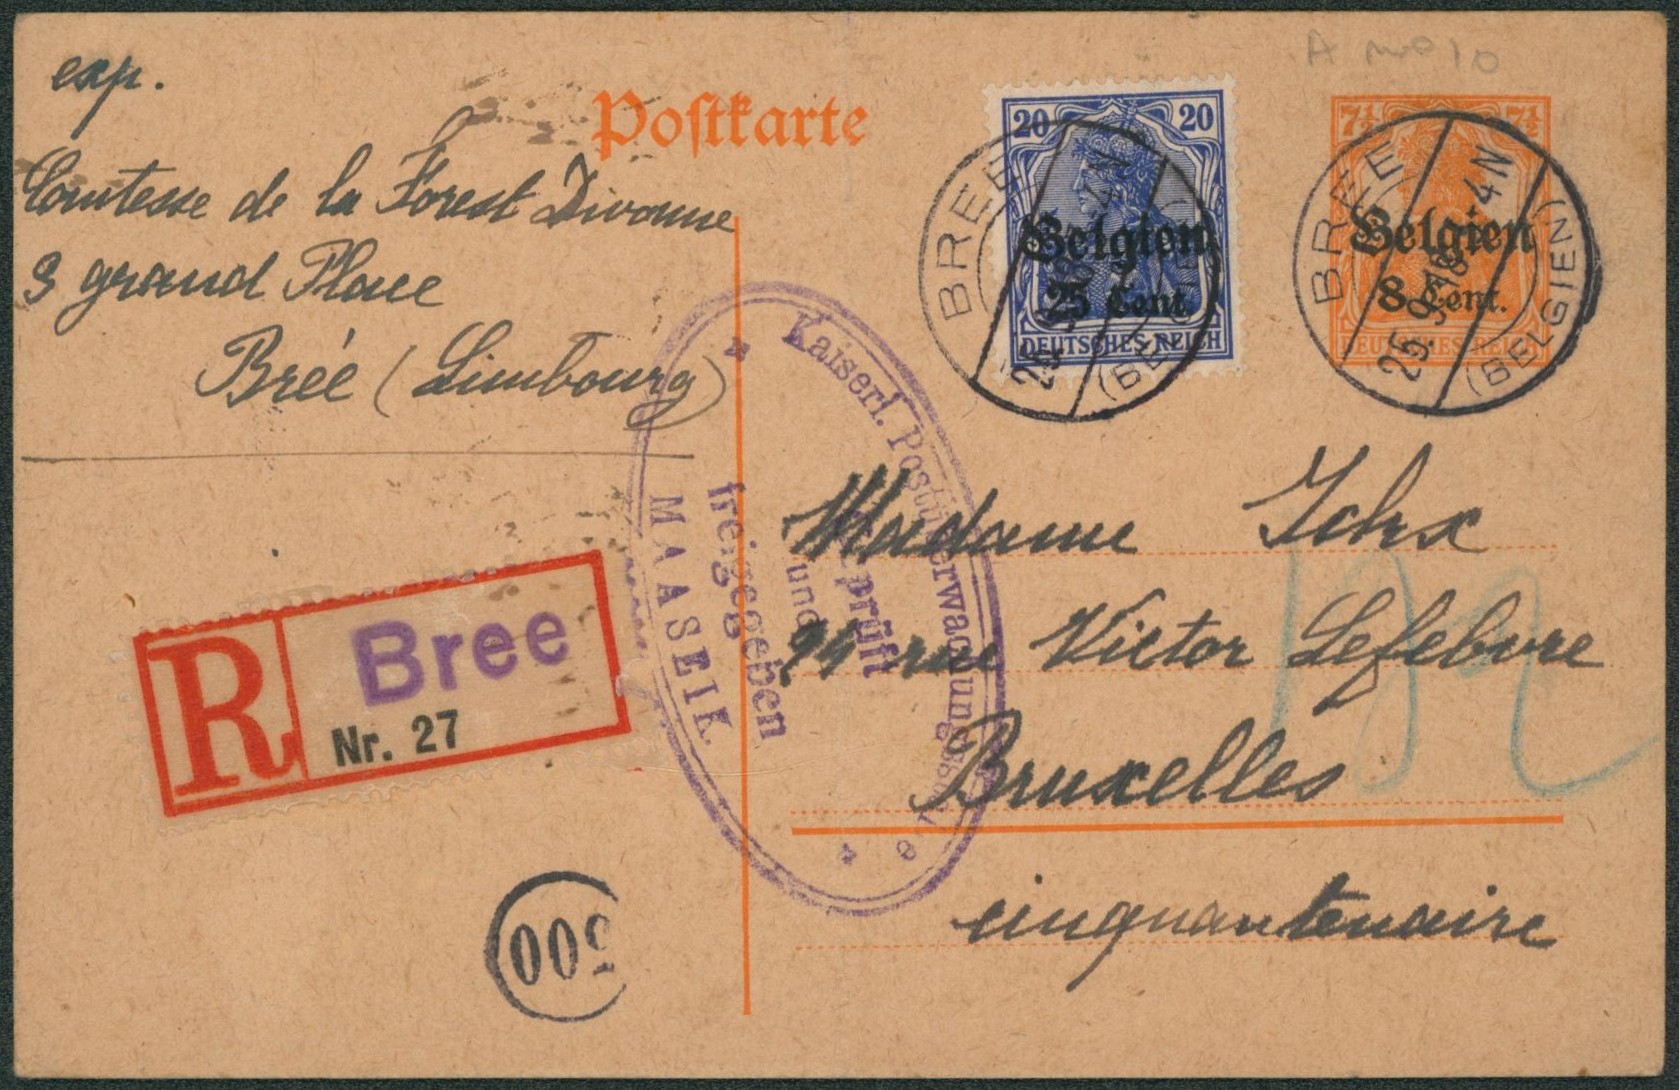 exp.
Comtesse de la Forest Divonne
9 grand Place
Brée (Limbourg)
Postkarte
20 20
Belgien
25 Cent.
DEUTSCHES REICH
BREE
(BELGIEN)
7½ 7½
Belgien
8 Cent.
DEUTSCHES REICH
BREE
25.9.18 4-N
(BELGIEN)
Kaiserl. Postüberwachungsstelle
geprüft
und
freigegeben
MAASEIK.
Madame
24 rue Victor Lefebvre
Bruxelles
cinquantenaire
R
Bree
Nr. 27
500